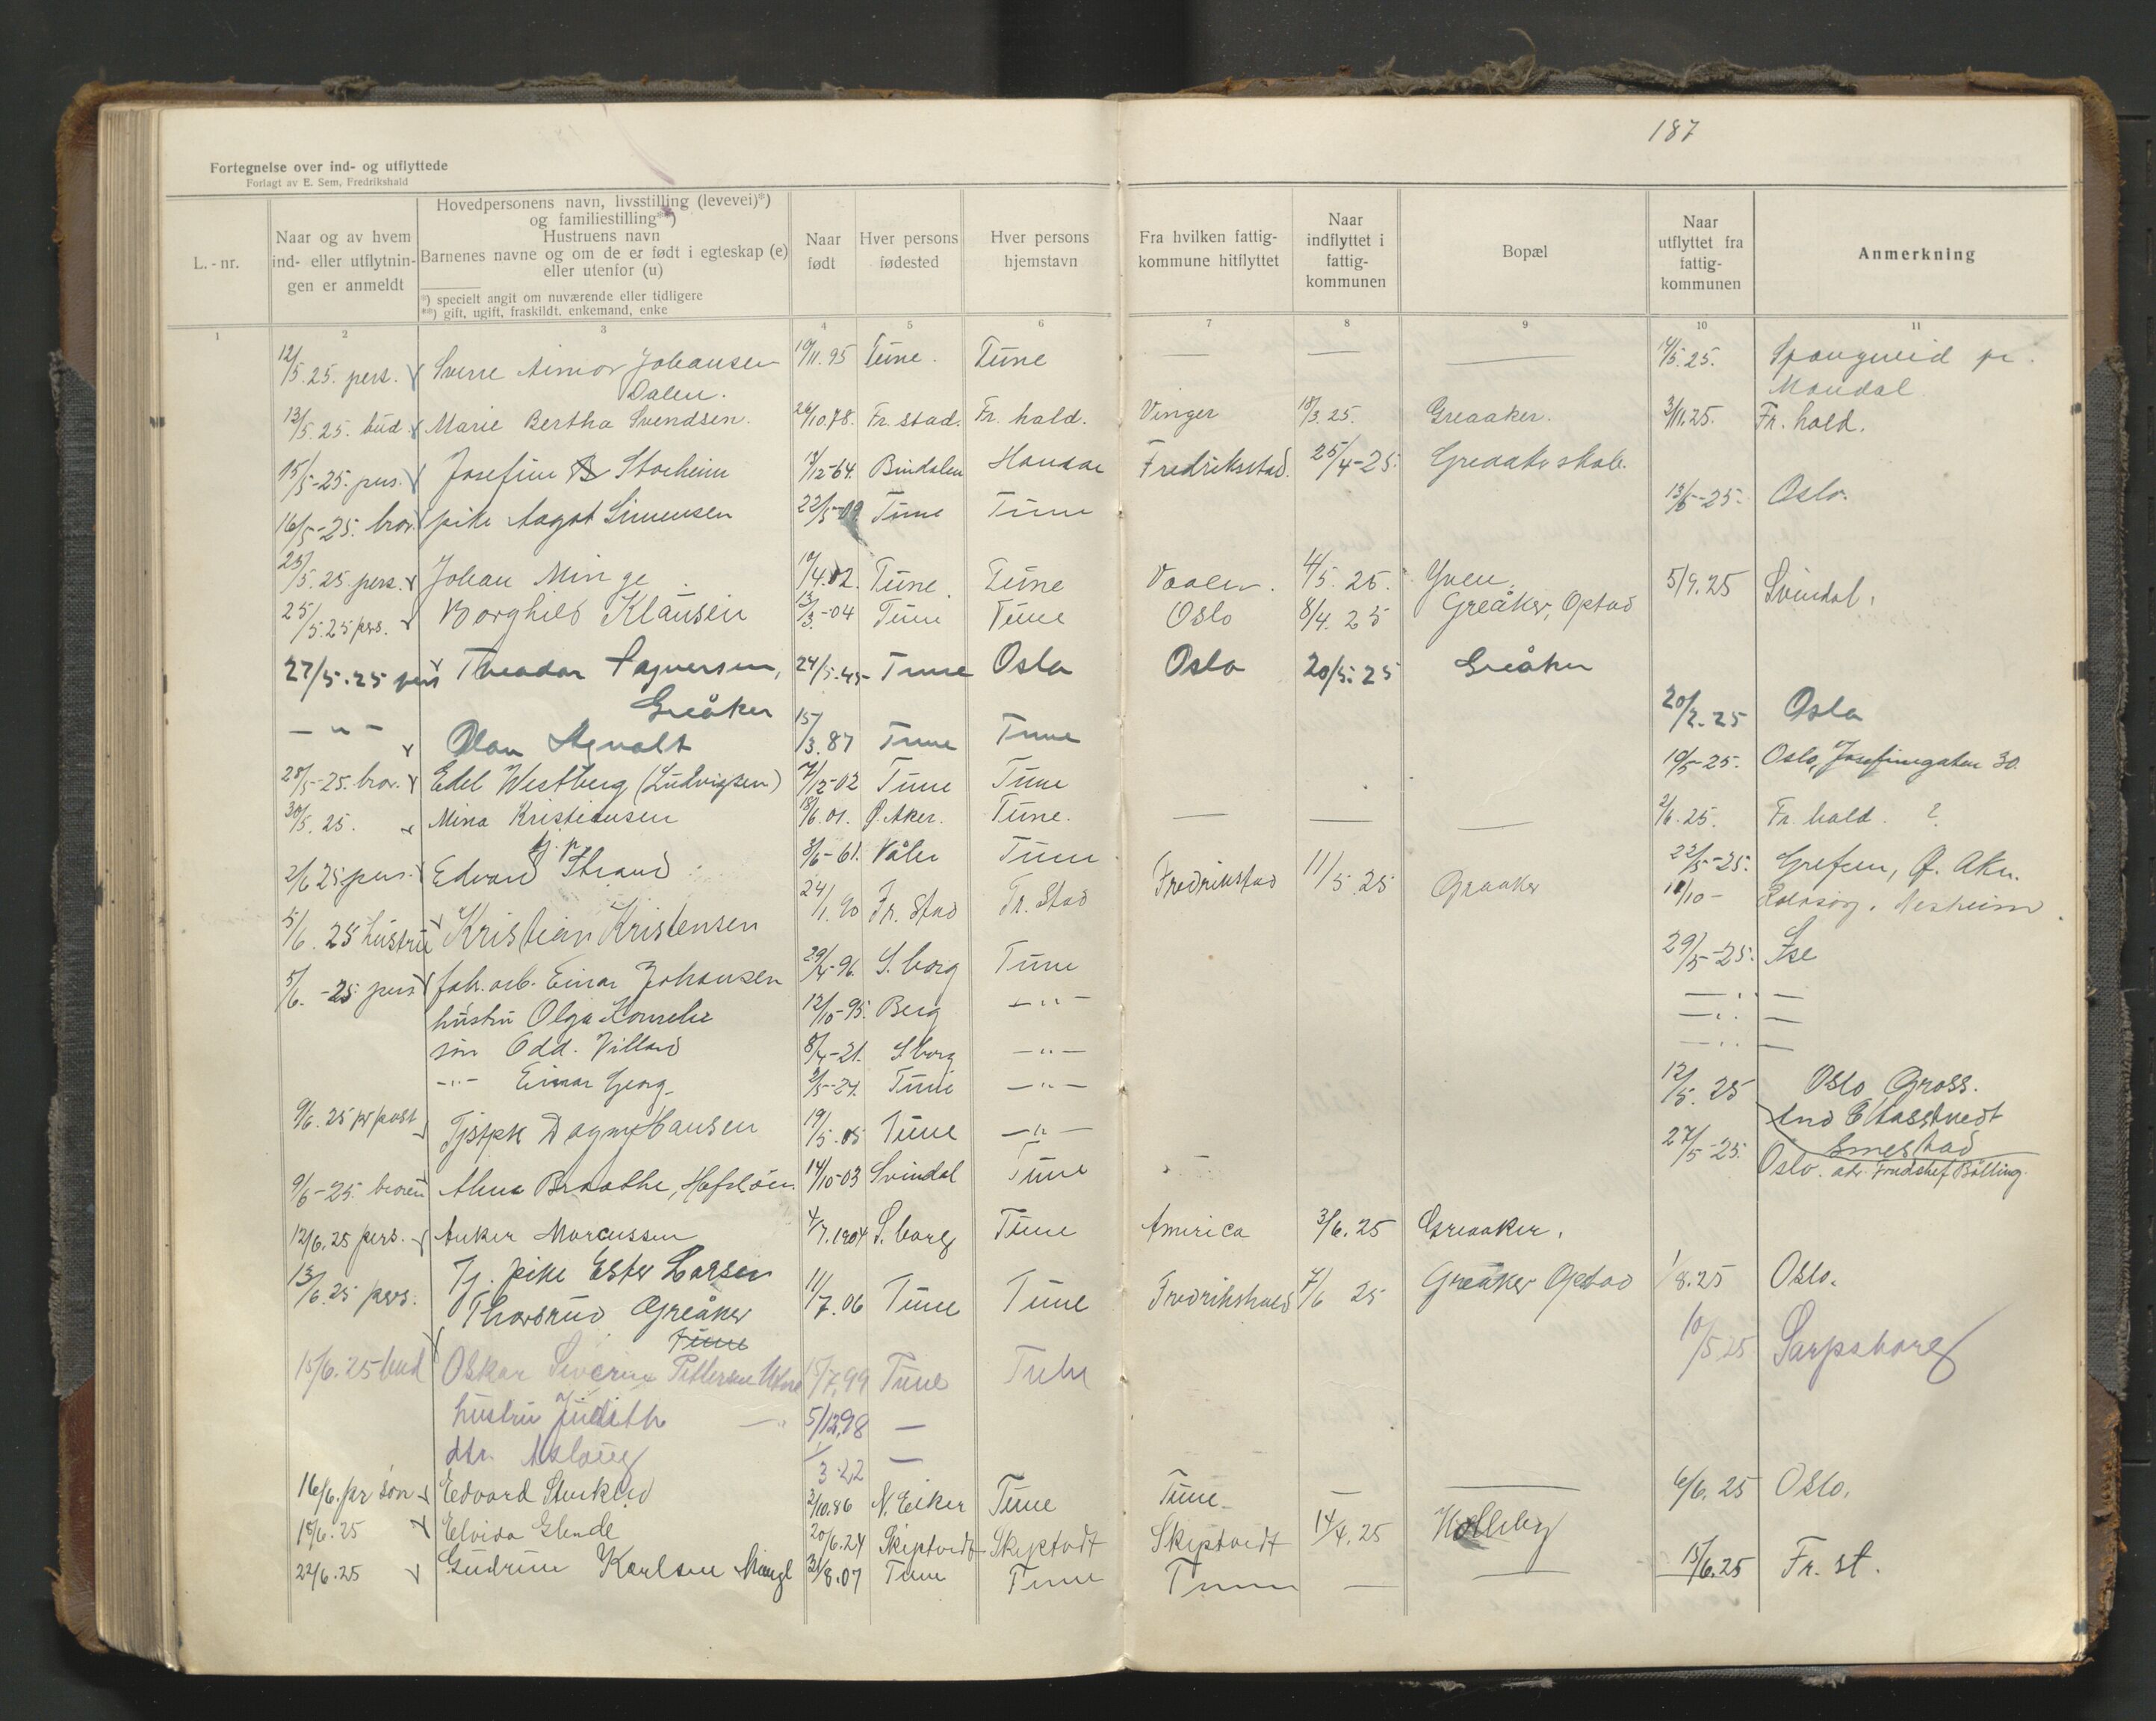 187
Fortegnelse over ind- og utflyttede
Forlagt av E. Sem, Fredrikshald
L.-nr.
Naar og av hvem
ind- eller utflytnin-
gen er anmeldt
Hovedpersonens navn, livsstilling (levevei)*)
og familiestilling**)
Hustruens navn
Barnenes navne og om de er født i egteskap (e)
eller utenfor (u)
*) specielt angit om nuværende eller tidligere
**) gift, ugift, fraskildt, enkemand, enke
Naar
født
Hver persons
fødested
Hver persons
hjemstavn
Fra hvilken fattig-
kommune hitflyttet
Naar
indflyttet i
fattig-
kommunen
Bopæl
Naar
utflyttet fra
fattig-
kommunen
Anmerkning
1 2 3 4 5 6 7 8 9 10 11
12/5.25. pers. Sverre Johansen 19/11.95 Tune. Tune — — — 14/5.25. pr.
Dalen. Mandal
13/5.25. bud Marie Bertha Svendsen. 26/10.78. Fr.stad. Fr. hald. Vinger 18/3.25. Greaaker. 3/11.25. Fr. hald.
15/5-25. pers. Josefine Storheim /12-64. Bindalen Fredriksstad. 25/4-25.
16/5-25. bror. pike Aagot Simensen 22/5-09 Tune Tune 13/5-25. Oslo.
23/5.25. pers. Johan Minge 10/4.02. Tune. Tune Vaaler. 4/5.25. Yven. 5/9.25 Svindal.
25/5.25 pers. Borghild Klausen 13/3.-04 Tune Tune Oslo 8/4.25 Greåker, Opstad
27/5.25 pers Theodor 24/5.45 Tune Oslo Oslo 20/5.25 Greåker
Greåker
— " — Olav 15/3.87 Tune Tune 20/2.25 Oslo
28/5-25. bror. Edel Westberg (Ludvigsen) 7/12-02 Tune Tune 19/5-25. Oslo, Josefinegaten 30.
30/5.25. Mina Kristiansen 18/6.01. Ø. Aker. Tune. — — — 2/6.25. Fr. hald. ?
2/6 25 pers. Edvard Strand 3/6-61. Våler Tune 22/5-25. Grefsen, Ø. Aker.
5/6.25 hustru Kristian Kristensen 24/1.90 Fr. Stad Fr. Stad Fredrikstad 11/5 25 Graaker 11/10-
5/6.-25 pers fabr. arb. Einar Johansen 29/4-96. S.borg Tune 29/5-25. Ise
hustru Olga 12/10-95. Berg — " — — " —
søn Odd. Villard 8/4-21. S.borg — " — — " —
— " — Einar Georg 2/5-24. Tune — " — — " —
9/6.25 pr post Tjstpk Dagny Hansen 19/5.05 Tune — " — 12/5.25 Oslo
Smestad
9/6-25. broren Alma Braathe, 14/10-03 Svindal Tune 27/5-25. Oslo.
12/6.25 pers. Anker Marcussen 4/7.1904 S.borg Tune America 3/6.25 Greaaker.
13/6.25 pers. Tj. pike Ester Larsen 11/7.06 Tune Tune Fredrikshald 7/6 25 Greåker Opstad 1/8.25 Oslo.
Greåker
Tune
15/6.25 bud Oskar Severin Pettersen 15/7,99 Tune Tune 10/5 25 Sarpsborg
hustru Judith — " 5/12,98 —
dtr. Aslaug 1/3 22 —
16/6. pr søn Edvard 2/10.86 N. Eiker Tune Tune — — 6/6.25 Oslo.
18/6.25 Elvida Glende 20/6.24 Skiptvedt Skiptvedt Skiptvedt 14/4.25
22/6.25 Gudrun Karlsen 31/8.07 Tune Tune Tune — — 15/6.25 Fr. st.